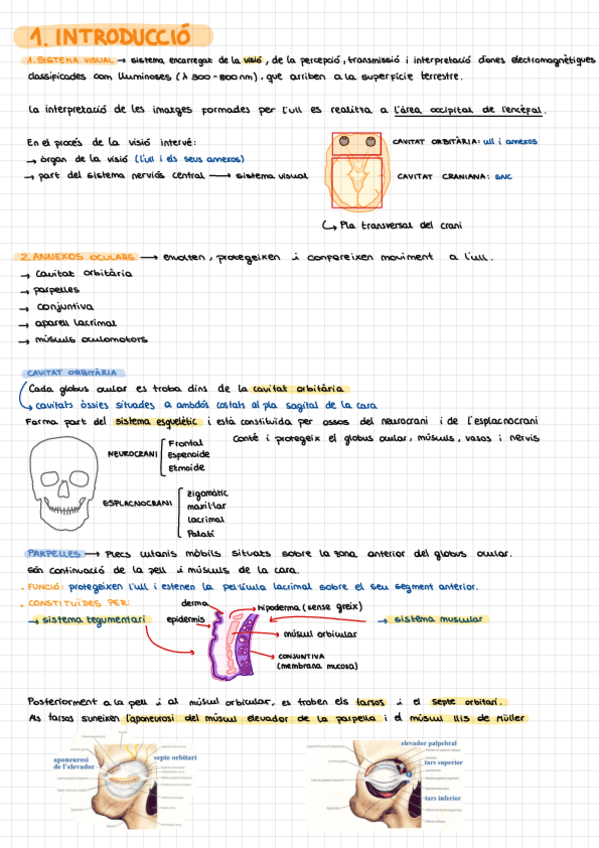 1. INTRODUCCIÓ
1. SISTEMA VISUAL → sistema encarregat de la visió, de la percepció, transmissió i interpretació d'ones electromagnètiques
classificades com lluminoses (λ 300-800nm), que arriben a la superfície terrestre.
La interpretació de les imatges formades per l'ull es realitza a l'àrea occipital de l'encèfal.
En el procés de la visió intervé:
→ òrgan de la visió (l'ull i els seus annexos)
→ part del sistema nerviós central → sistema visual
CAVITAT ORBITÀRIA: ull i annexos
CAVITAT CRANIANA: SNC
↳ Pla transversal del crani
2. ANNEXOS OCULARS → envolten, protegeixen i confereixen moviment a l'ull.
→ cavitat orbitària
→ parpelles
→ conjuntiva
→ aparell lacrimal
→ músculs oculomotors
CAVITAT ORBITÀRIA
Cada globus ocular es troba dins de la cavitat orbitària
→ cavitats òssies situades a ambdós costats al pla sagital de la cara
Forma part del sistema esquelètic i està constituïda per ossos del neurocrani i de l'esplacnocrani
Conté i protegeix el globus ocular, músculs, vasos i nervis
NEUROCRANI
Frontal
Esfenoide
Etmoide
ESPLACNOCRANI
Zigomàtic
maxil·lar
lacrimal
Palatí
PARPELLES → Plecs cutanis mòbils situats sobre la zona anterior del globus ocular.
són continuació de la pell i músculs de la cara.
. FUNCIÓ: protegeixen l'ull i estenen la pel·lícula lacrimal sobre el seu segment anterior.
. CONSTITUÏDES PER:
→ sistema tegumentari
derma
epidermis
hipoderma (sense greix)
múscul orbicular
CONJUNTIVA
(membrana mucosa)
→ sistema muscular
Posteriorment a la pell i al múscul orbicular, es troben els tarsos i el septe orbitari.
Als tarsos s'uneixen l'aponeurosi del múscul elevador de la parpella i el múscul llis de Müller
aponeurosi
de l'elevador
septe orbitari
elevador palpebral
tars superior
tars inferior